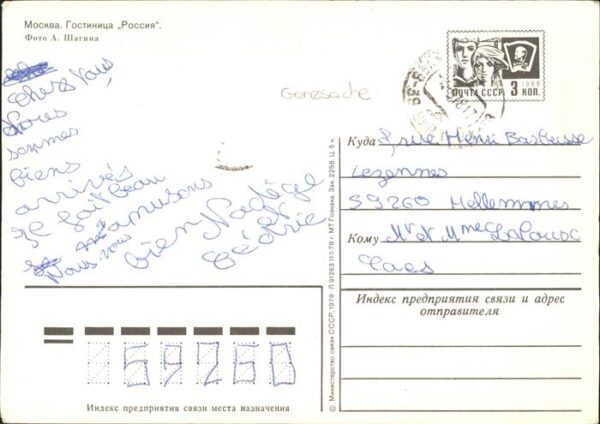 Москва. Гостиница „Россия".
Фото А. Шагина
chers vous
Nous
sommes
biens
arrivés
Il fait beau
Nous vous
amusons
bien Nadège
et
Cédric
Ganzsache
ПОЧТА СССР 3 КОП.
1966
Куда
rue Henri Barbusse
Lezennes
59260 Hellemmes
Кому Mr et Mme
Индекс предприятия связи и адрес
отправителя
59260
Индекс предприятия связи места назначения
© Министерство связи СССР, 1978